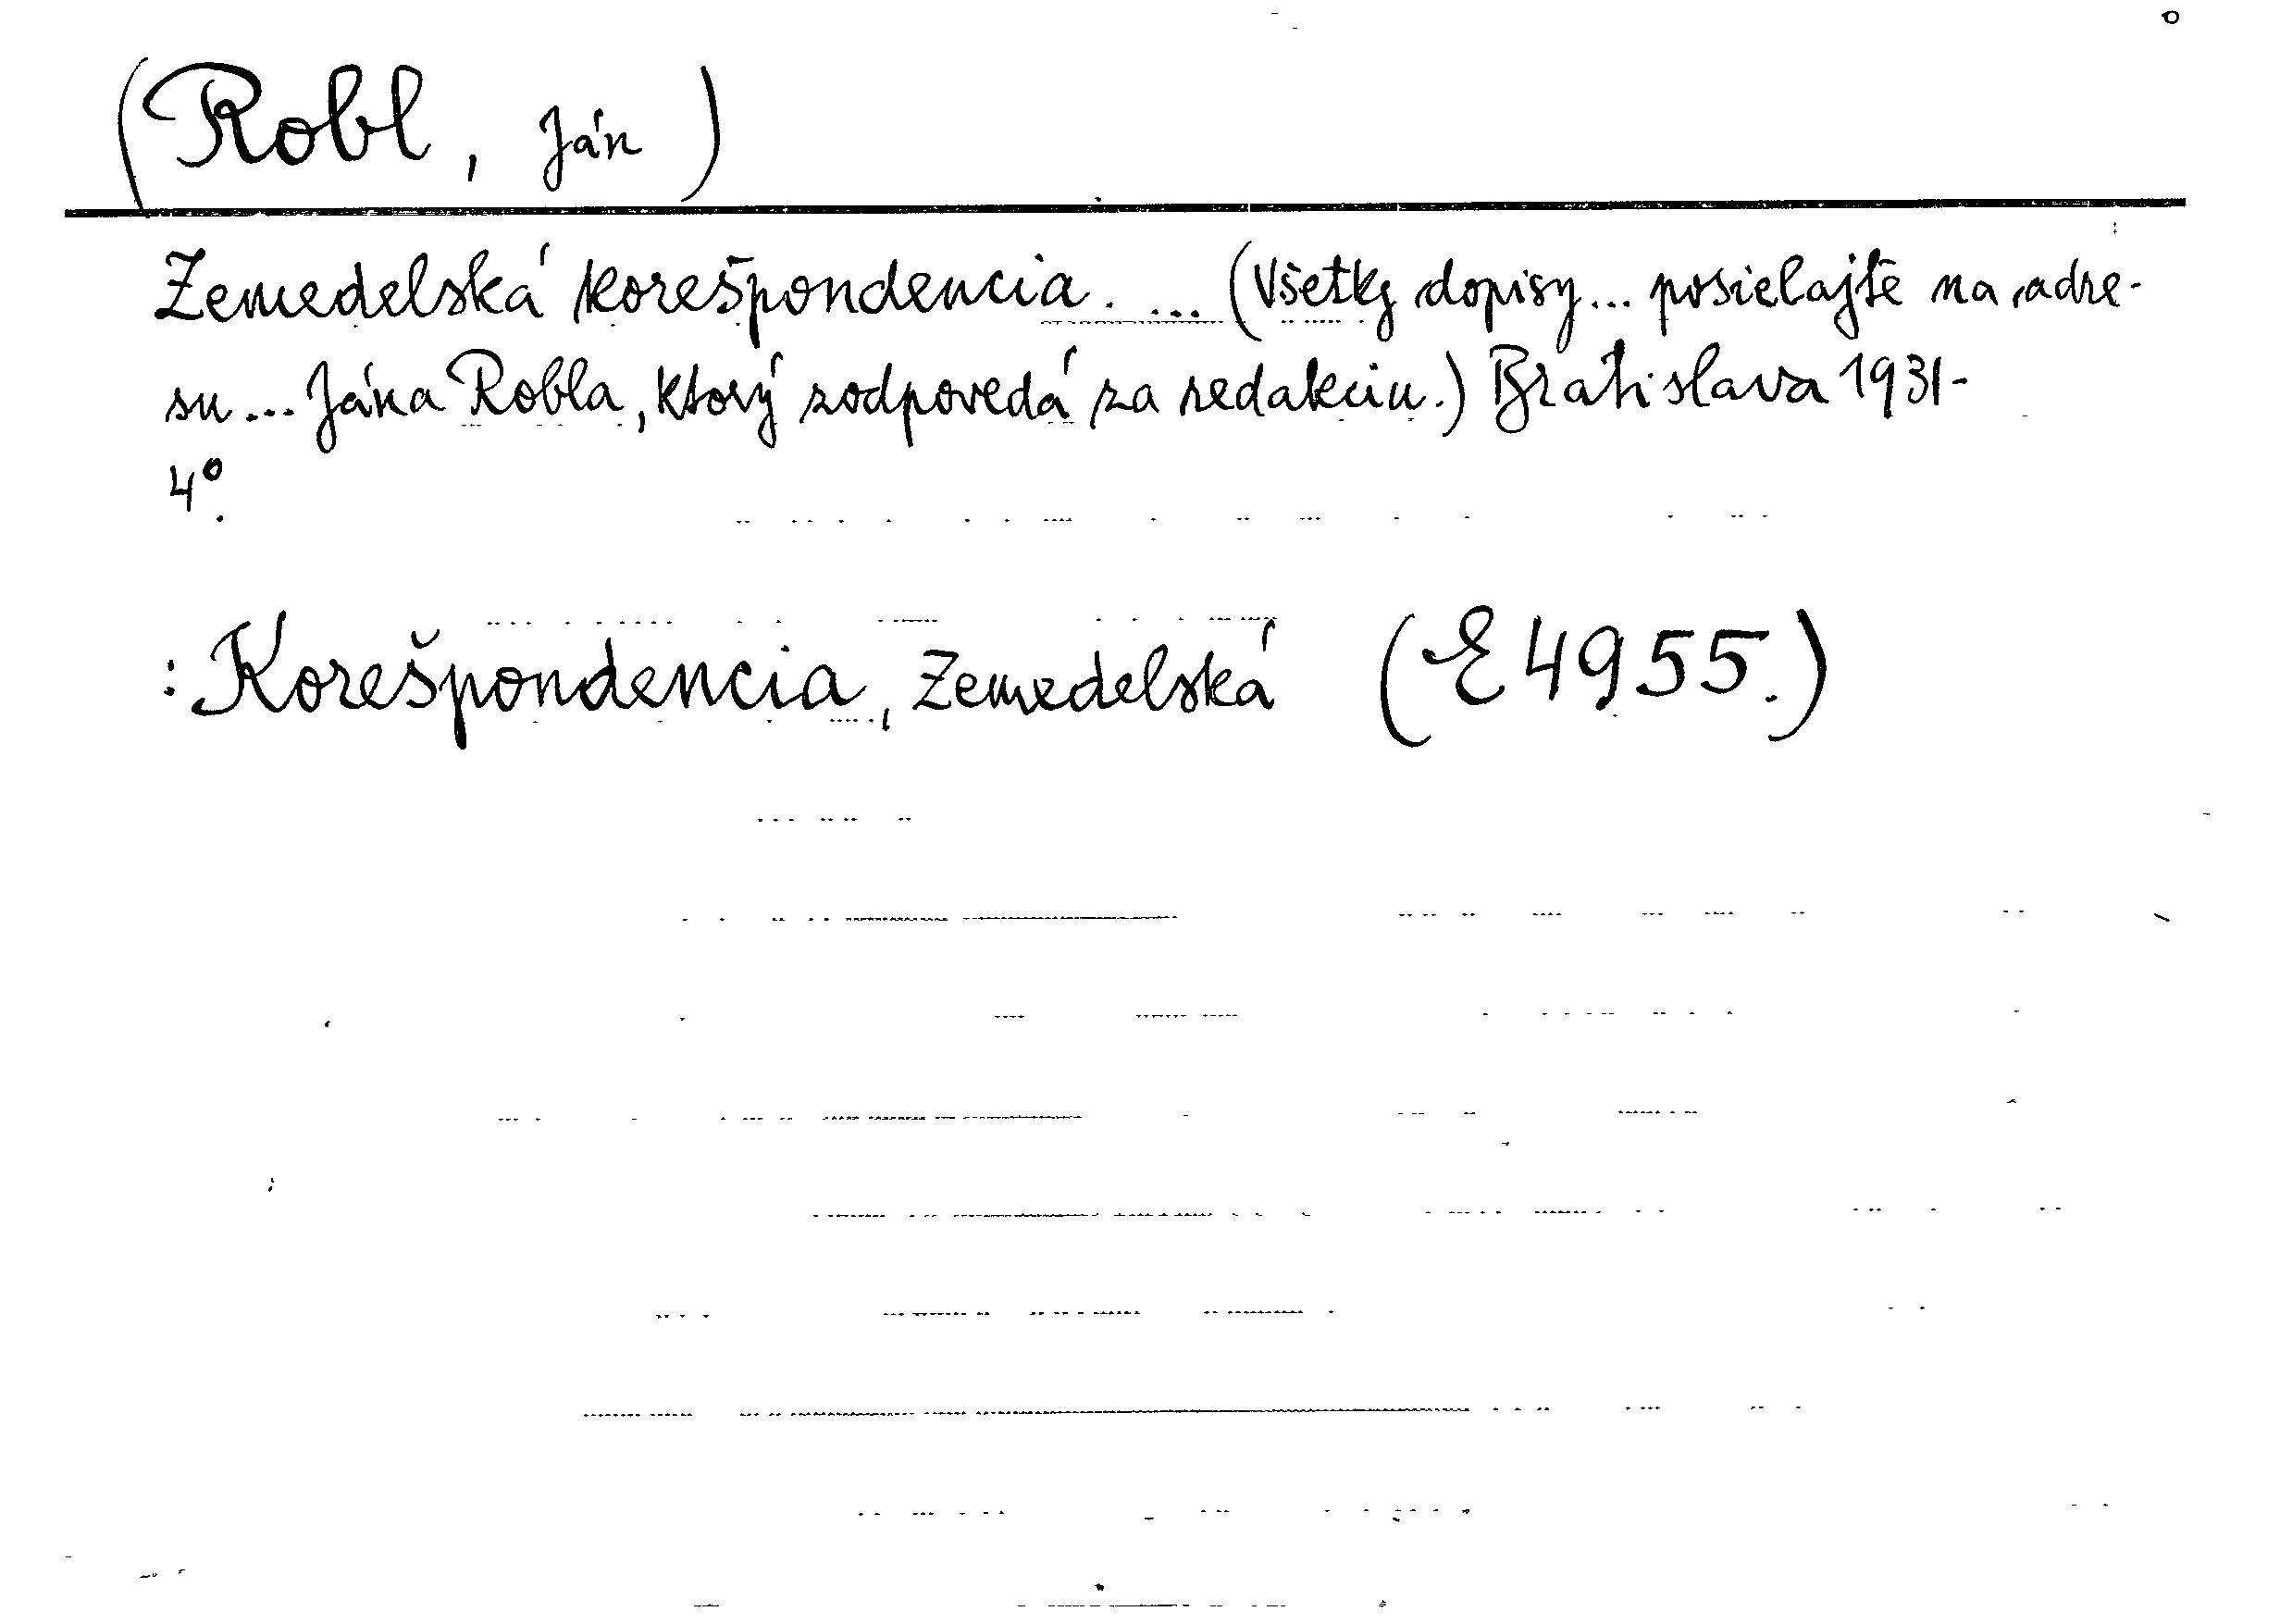 (Robl, Ján)
Zemedelská korešpondencia. ... (Všetky dopisy... posielajte na adre-
su ... Jána Robla, ktorý zodpovedá za redakciu.) Bratislava 1931-
4°.
: Korešpondencia, Zemedelská (E 4955.)